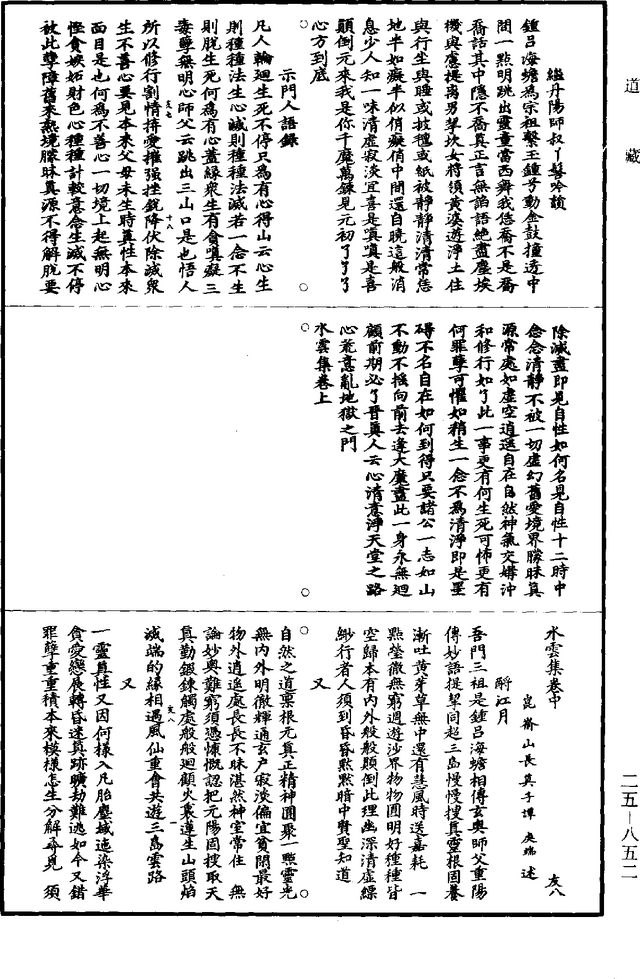 道藏
繼丹陽師叔丫髻吟韻
鍾呂海蟾為宗祖繫玉鍾兮動金鼓撞透中
間一點明跳出靈童當西舞我恁喬不是喬
喬話其中隱不喬真正言無諂語絕盡塵埃
機與慮提离男挈坎女將領黃婆遊淨土住
與行坐與睡或披氊或紙被靜靜清清常恁
地半如癡半似俏癡俏中間還自曉這般消
息少人知一味清虛寂淡宜喜是嗔嗔是喜
顛倒元來我是你千魔萬鍊見元初了了了
心方到底
示門人語錄
凡人輪迴生死不停只為有心得山云心生
則種種法生心滅則種種法滅若一念不生
則脫生死何為有心蓋緣眾生有貪嗔癡三
毒孽無明心師父云跳出三山口是也悟人
所以修行割情捨愛摧强挫銳降伏除滅眾
生不善心要見本來父母未生時真性本來
面目是也何為不善心一切境上起無明心
慳貪嫉妬財色心種種計較意念生滅不停
被此孽障舊來熟境朦昧真源不得解脫要
除滅盡即見自性如何名見自性十二時中
念念清靜不被一切虛幻舊愛境界朦昧真
源常處如虛空逍遥自在自然神氣交媾冲
和修行如了此一事更有何生死可怖更有
何罪孽可懼如稍生一念不為清淨即是罣
礙不名自在如何到得只要諸公一志如山
不動不搖向前去逢大魔盡此一身永無迴
顧前期必了晉真人云心清意淨天堂之路
心荒意亂地獄之門
水雲集卷上
水雲集卷中
友八
崑崳山長真子譚處端述
酹江月
吾門三祖是鍾呂海蟾相傳玄奧師父重陽
傳妙語提挈同超三島慢慢搜真靈根固養
漸吐黃芽草無中還有慧風時送嘉耗 一
點瑩徹無窮週遊沙界物物圓明好種種皆
空歸本有內外般般顛倒此理幽深清虛縹
緲行者人須到昏昏默默暗中賢聖知道
又
自然之道禀根元真正精神圓聚一點靈光
無內外明徹輝通玄戶寂淡偏宜貧閑最好
物外逍遥處長長不昧湛然神室常住 無
論妙與難窮須憑慷慨認把元陽固搜取天
真勤鍛鍊觸處般般迴顧火裏蓮生山頭焰
滅端的緣相遇風仙重會共遊三島雲路
又
一靈真性又因何樣入凡胎塵域迤染浮華
貪愛戀展轉昏迷真跡曠劫難逃如今又錯
罪孽重重積本來模樣怎生分解尋見 須
二五—八五二